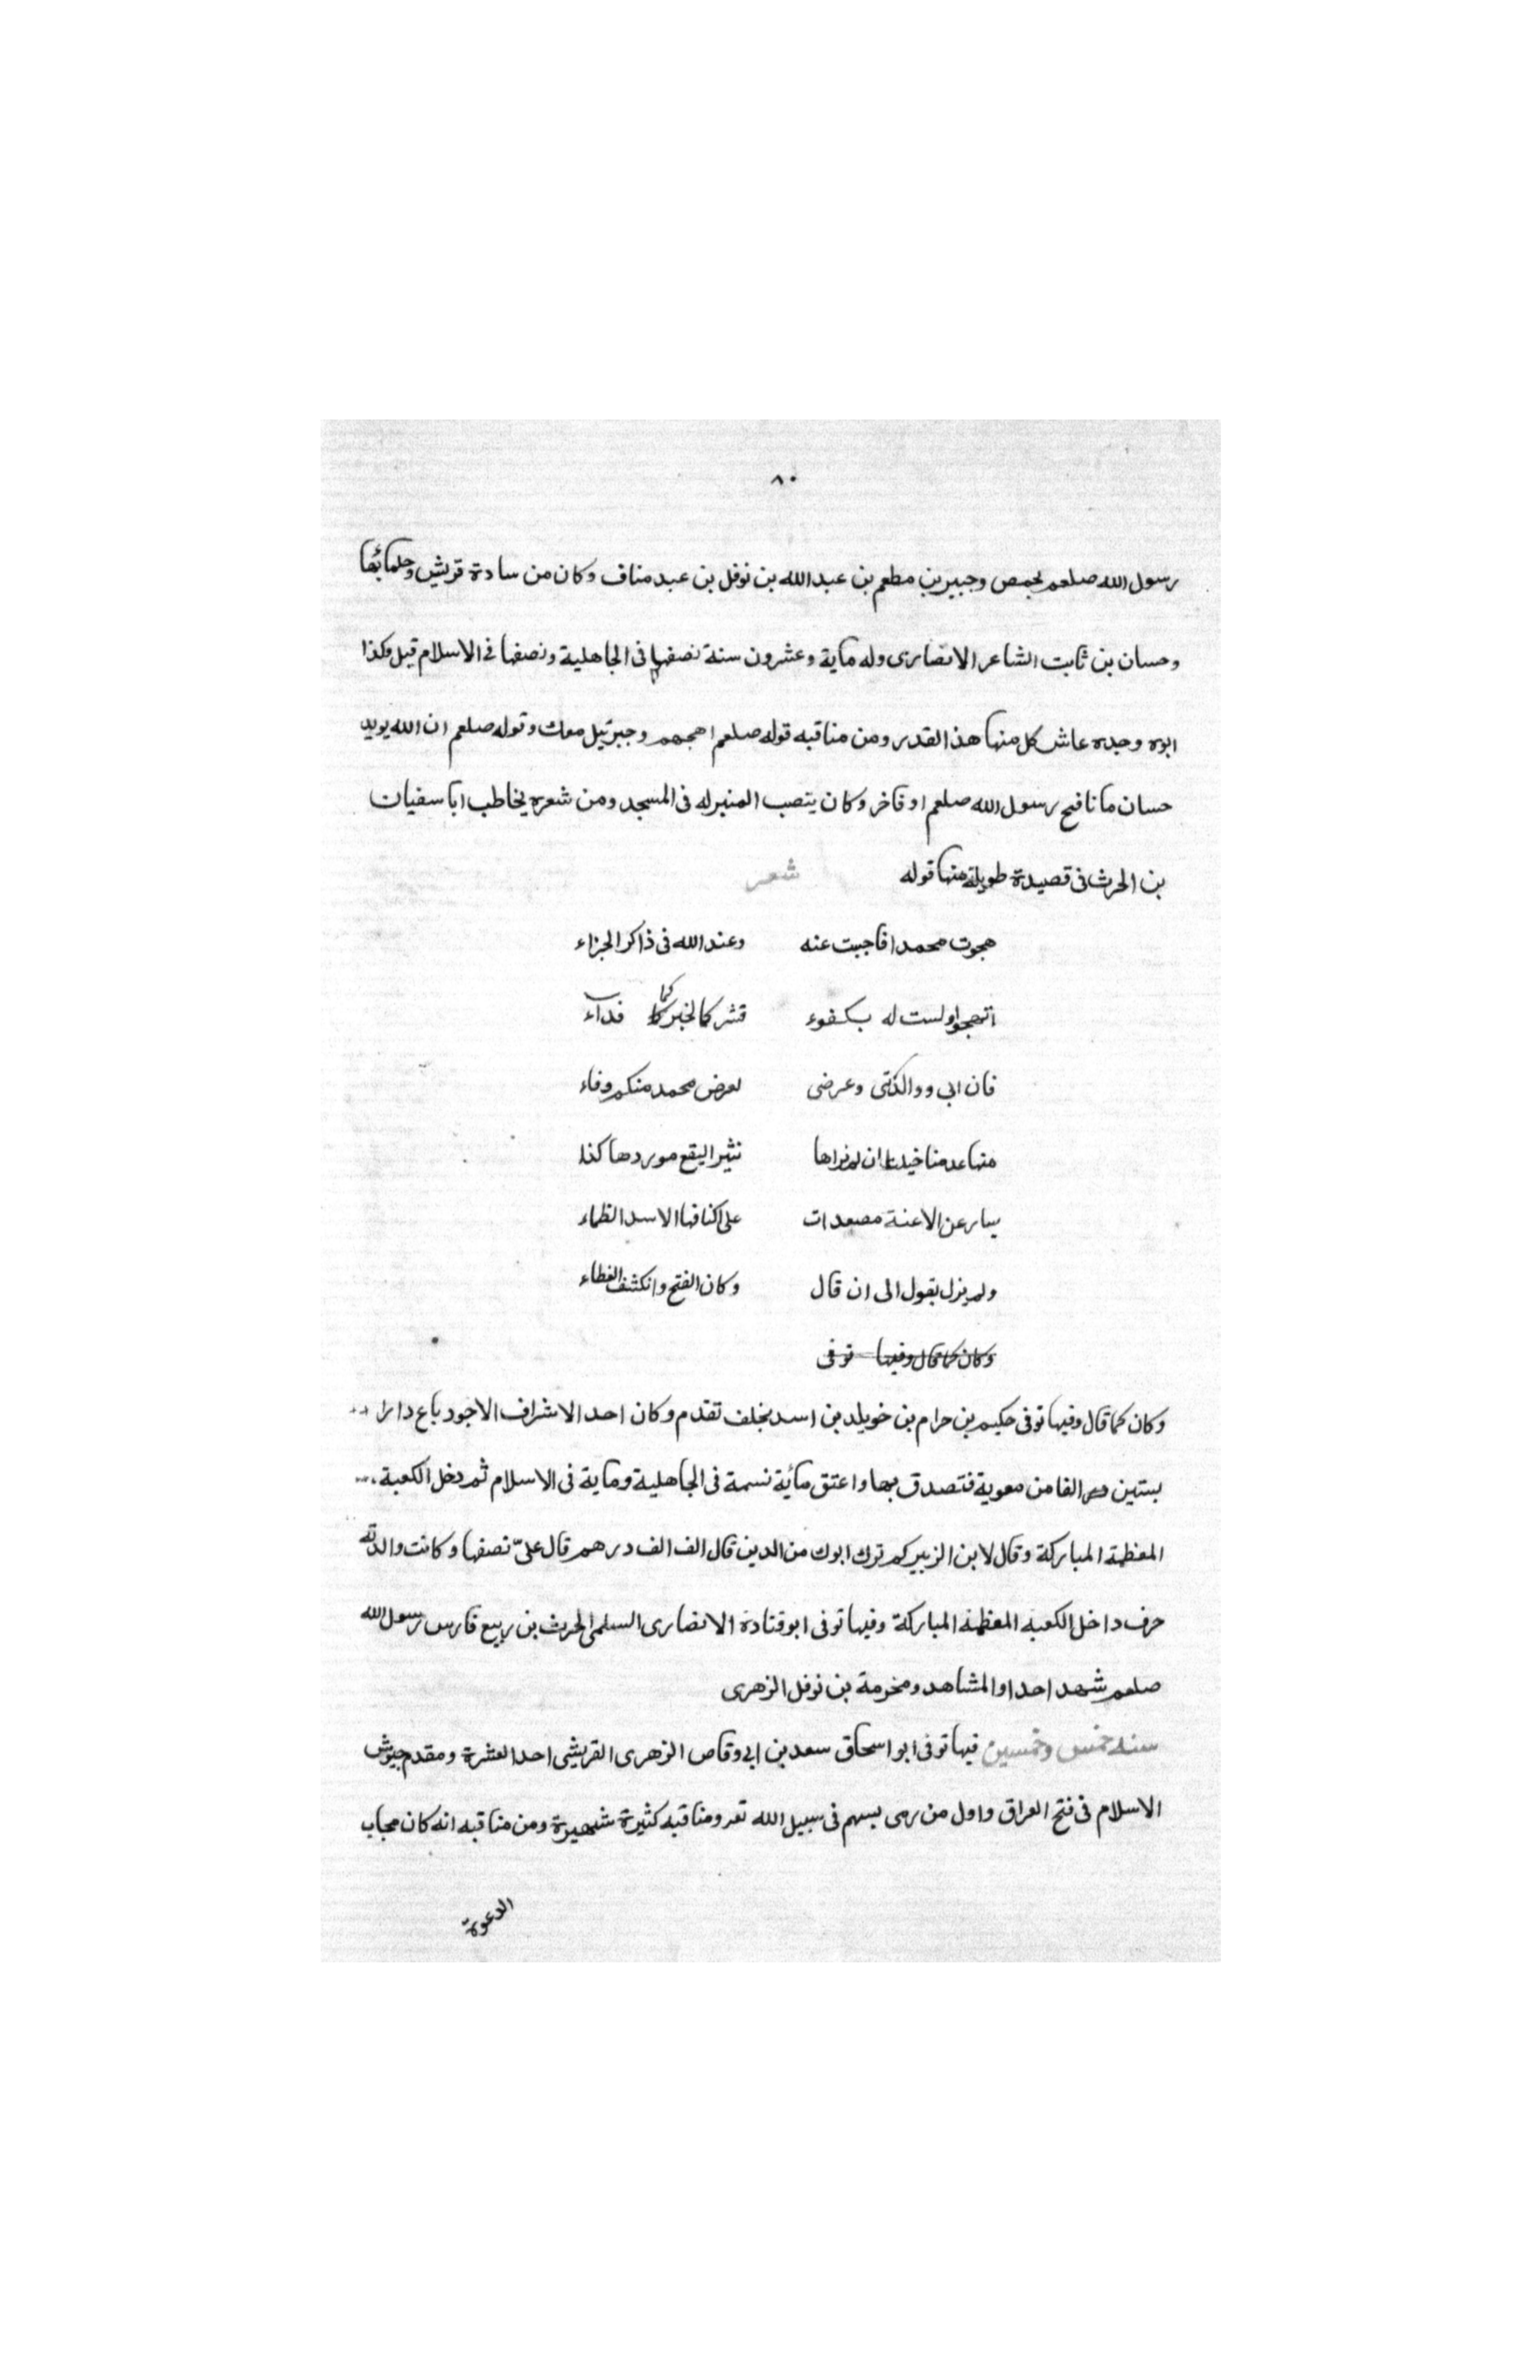 ٨٠
رسول الله صلعم بحمص وجبير بن مطعم بن عبد الله بن نوفل بن عبد مناف وكان من سادة قريش وحلمائها
وحسان بن ثابت الشاعر الانصارى وله ماية وعشرون سنة نصفها فى الجاهلية ونصفها فى الاسلام قيل وكذا
ابوه وجده عاش كل منها هذا القدر ومن مناقبه قوله صلعم اهجهم وجبرئيل معك وقوله صلعم ان الله يويد
حسان ما نافح رسول الله صلعم او فاخر وكان ينصب المنبر له فى المسجد ومن شعره يخاطب ابا سفيان
بن الحرث فى قصيدة طويلة منها قوله شعر
هجوت محمدا فاجبت عنه وعند الله فى ذاكر الجزاء
اتهجوا ولست له بكفوء فشركما لخيركما فداء
فان ابى ووالدتى وعرضى لعرض محمد منكم وفاء
منها عدمنا خيلنا ان لم نراها تثير النقع موردها كذا
يبارعن الاعنة مصعدات على اكنافها الاسد الظماء
ولم يزل يقول الى ان قال وكان الفتح وانكشف الغطاء
وكان كما قال وفيها توفى
وكان كما قال وفيها توفى حكيم بن حرام بن خويلد بن اسد بخلف تقدم وكان احد الاشراف الاجود باع دارا
بستين الفا من معوية فتصدق بها واعتق مائة نسمة فى الجاهلية وماية فى الاسلام ثم دخل الكعبة
المعظمة المباركة وقال لابن الزبير كم ترك ابوك من الدين قال الف الف درهم قال علىّ نصفها وكانت والدته
حرف داخل الكعبة المعظمة المباركة وفيها توفى ابو قتادة الانصارى السلمى الحرث بن ربيع فارس رسول الله
صلعم شهد احدا والمشاهد ومخرمة بن نوفل الزهرى
سنة خمس وخمسين فيها توفى ابو اسحاق سعد بن ابى وقاص الزهرى القريشى احد العشرة ومقدم جيوش
الاسلام فى فتح العراق واول من رمى بسهم فى سبيل الله تعر ومناقبه كثيرة شهيرة ومن مناقبه انه كان مجاب
الدعوة